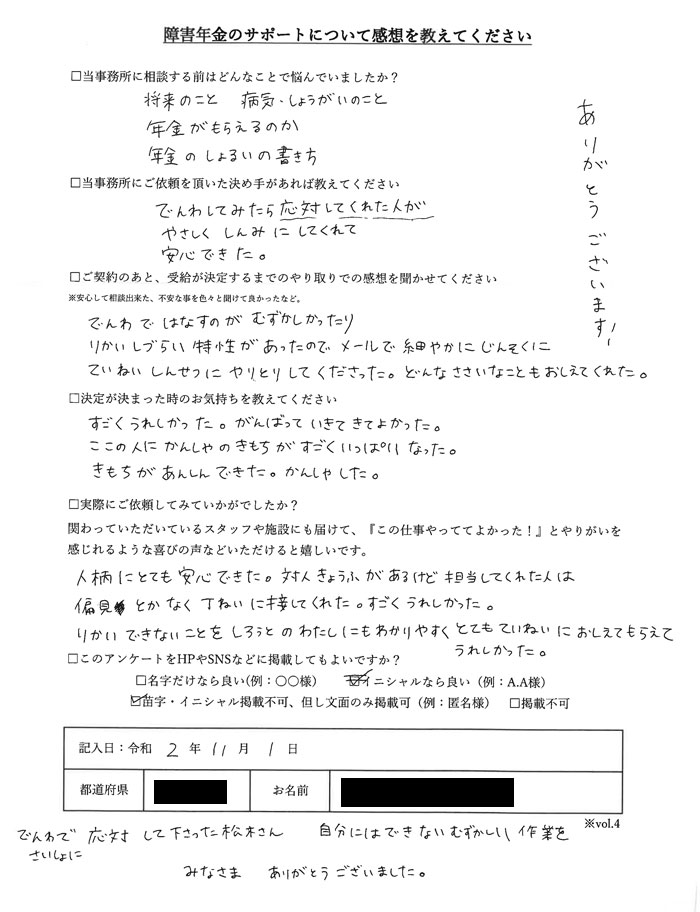 障害年金のサポートについて感想を教えてください
□当事務所に相談する前はどんなことで悩んでいましたか？
将来のこと　病気、しょうがいのこと
年金がもらえるのか
年金のしょるいの書き方
□当事務所にご依頼を頂いた決め手があれば教えてください
でんわしてみたら応対してくれた人が
やさしく しんみに してくれて
安心できた。
ありがとうございます!
□ご契約のあと、受給が決定するまでのやり取りでの感想を聞かせてください
※安心して相談出来た、不安な事を色々と聞けて良かったなど。
でんわで はなすのが むずかしかったり
りかいしづらい 特性が あったので メールで 細やかに じんそくに
ていねい しんせつに やりとりしてくださった。どんな ささいなことも おしえてくれた。
□決定が決まった時のお気持ちを教えてください
すごくうれしかった。がんばって いきて きてよかった。
ここの人に かんしゃの きもちが すごくいっぱい なった。
きもちが あんしん できた。かんしゃした。
□実際にご依頼してみていかがでしたか？
関わっていただいているスタッフや施設にも届けて、『この仕事やっててよかった！』とやりがいを
感じれるような喜びの声などいただけると嬉しいです。
人柄にとても 安心できた。対人きょうふが あるけど 担当してくれた人は
偏見 とか なく 丁ねいに接してくれた。すごくうれしかった。
りかい できないことを しろうとの わたしにもわかりやすく とても ていねいに おしえてもらえて
うれしかった。
□このアンケートをHPやSNSなどに掲載してもよいですか？
□名字だけなら良い(例：〇〇様)　☑イニシャルなら良い（例：A.A様）
☑苗字・イニシャル掲載不可、但し文面のみ掲載可（例：匿名様）　□掲載不可
記入日：令和 2 年 11 月 1 日
都道府県　お名前
※vol.4
でんわで 応対 して下さった 松木さん　自分にはできないむずかしい 作業を
さいしょに
みなさま　ありがとうございました。